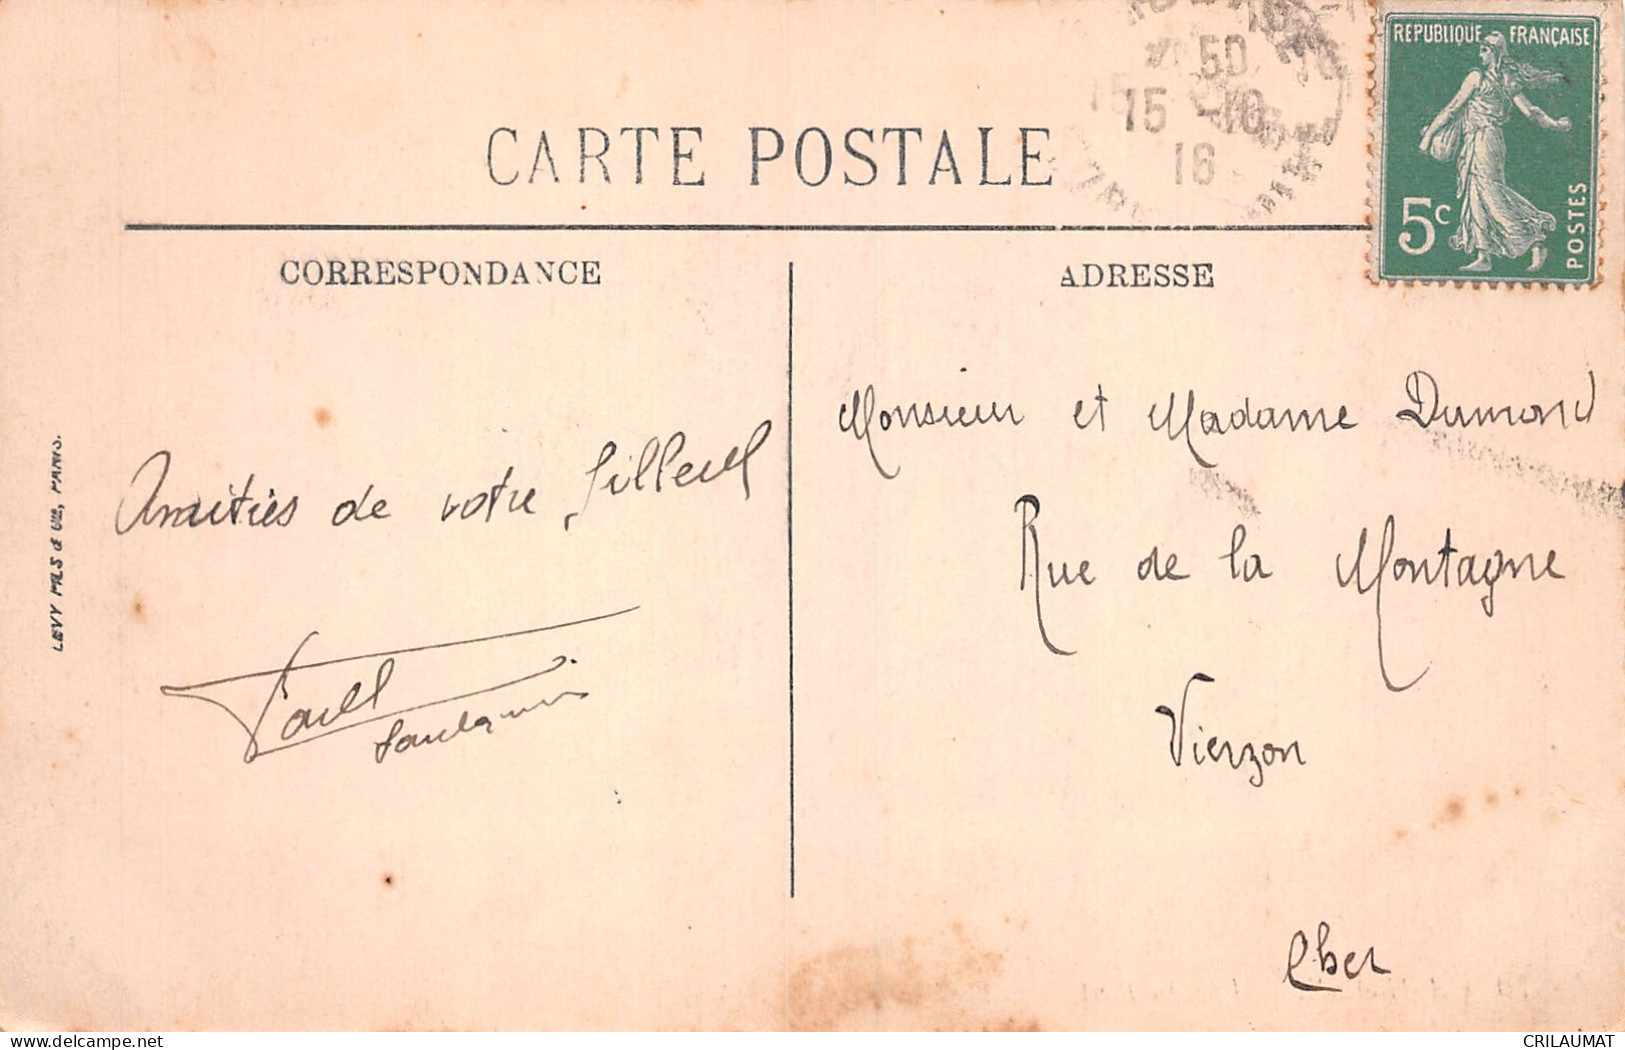 CARTE POSTALE
50
15 -10
16
REPUBLIQUE FRANÇAISE
5c
POSTES
CORRESPONDANCE
ADRESSE
Amitiés de votre filleul
Monsieur et Madame Dumond
Rue de la Montagne
Vierzon
Cher
LEVY FILS & Cie, PARIS.
www.delcampe.net
CRILAUMAT